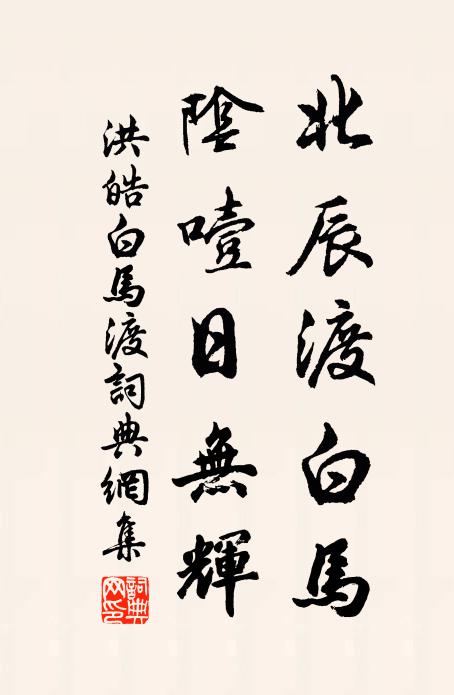 北辰渡白馬
陰噎日無輝
洪皓白馬渡詞典網集
詞典網印